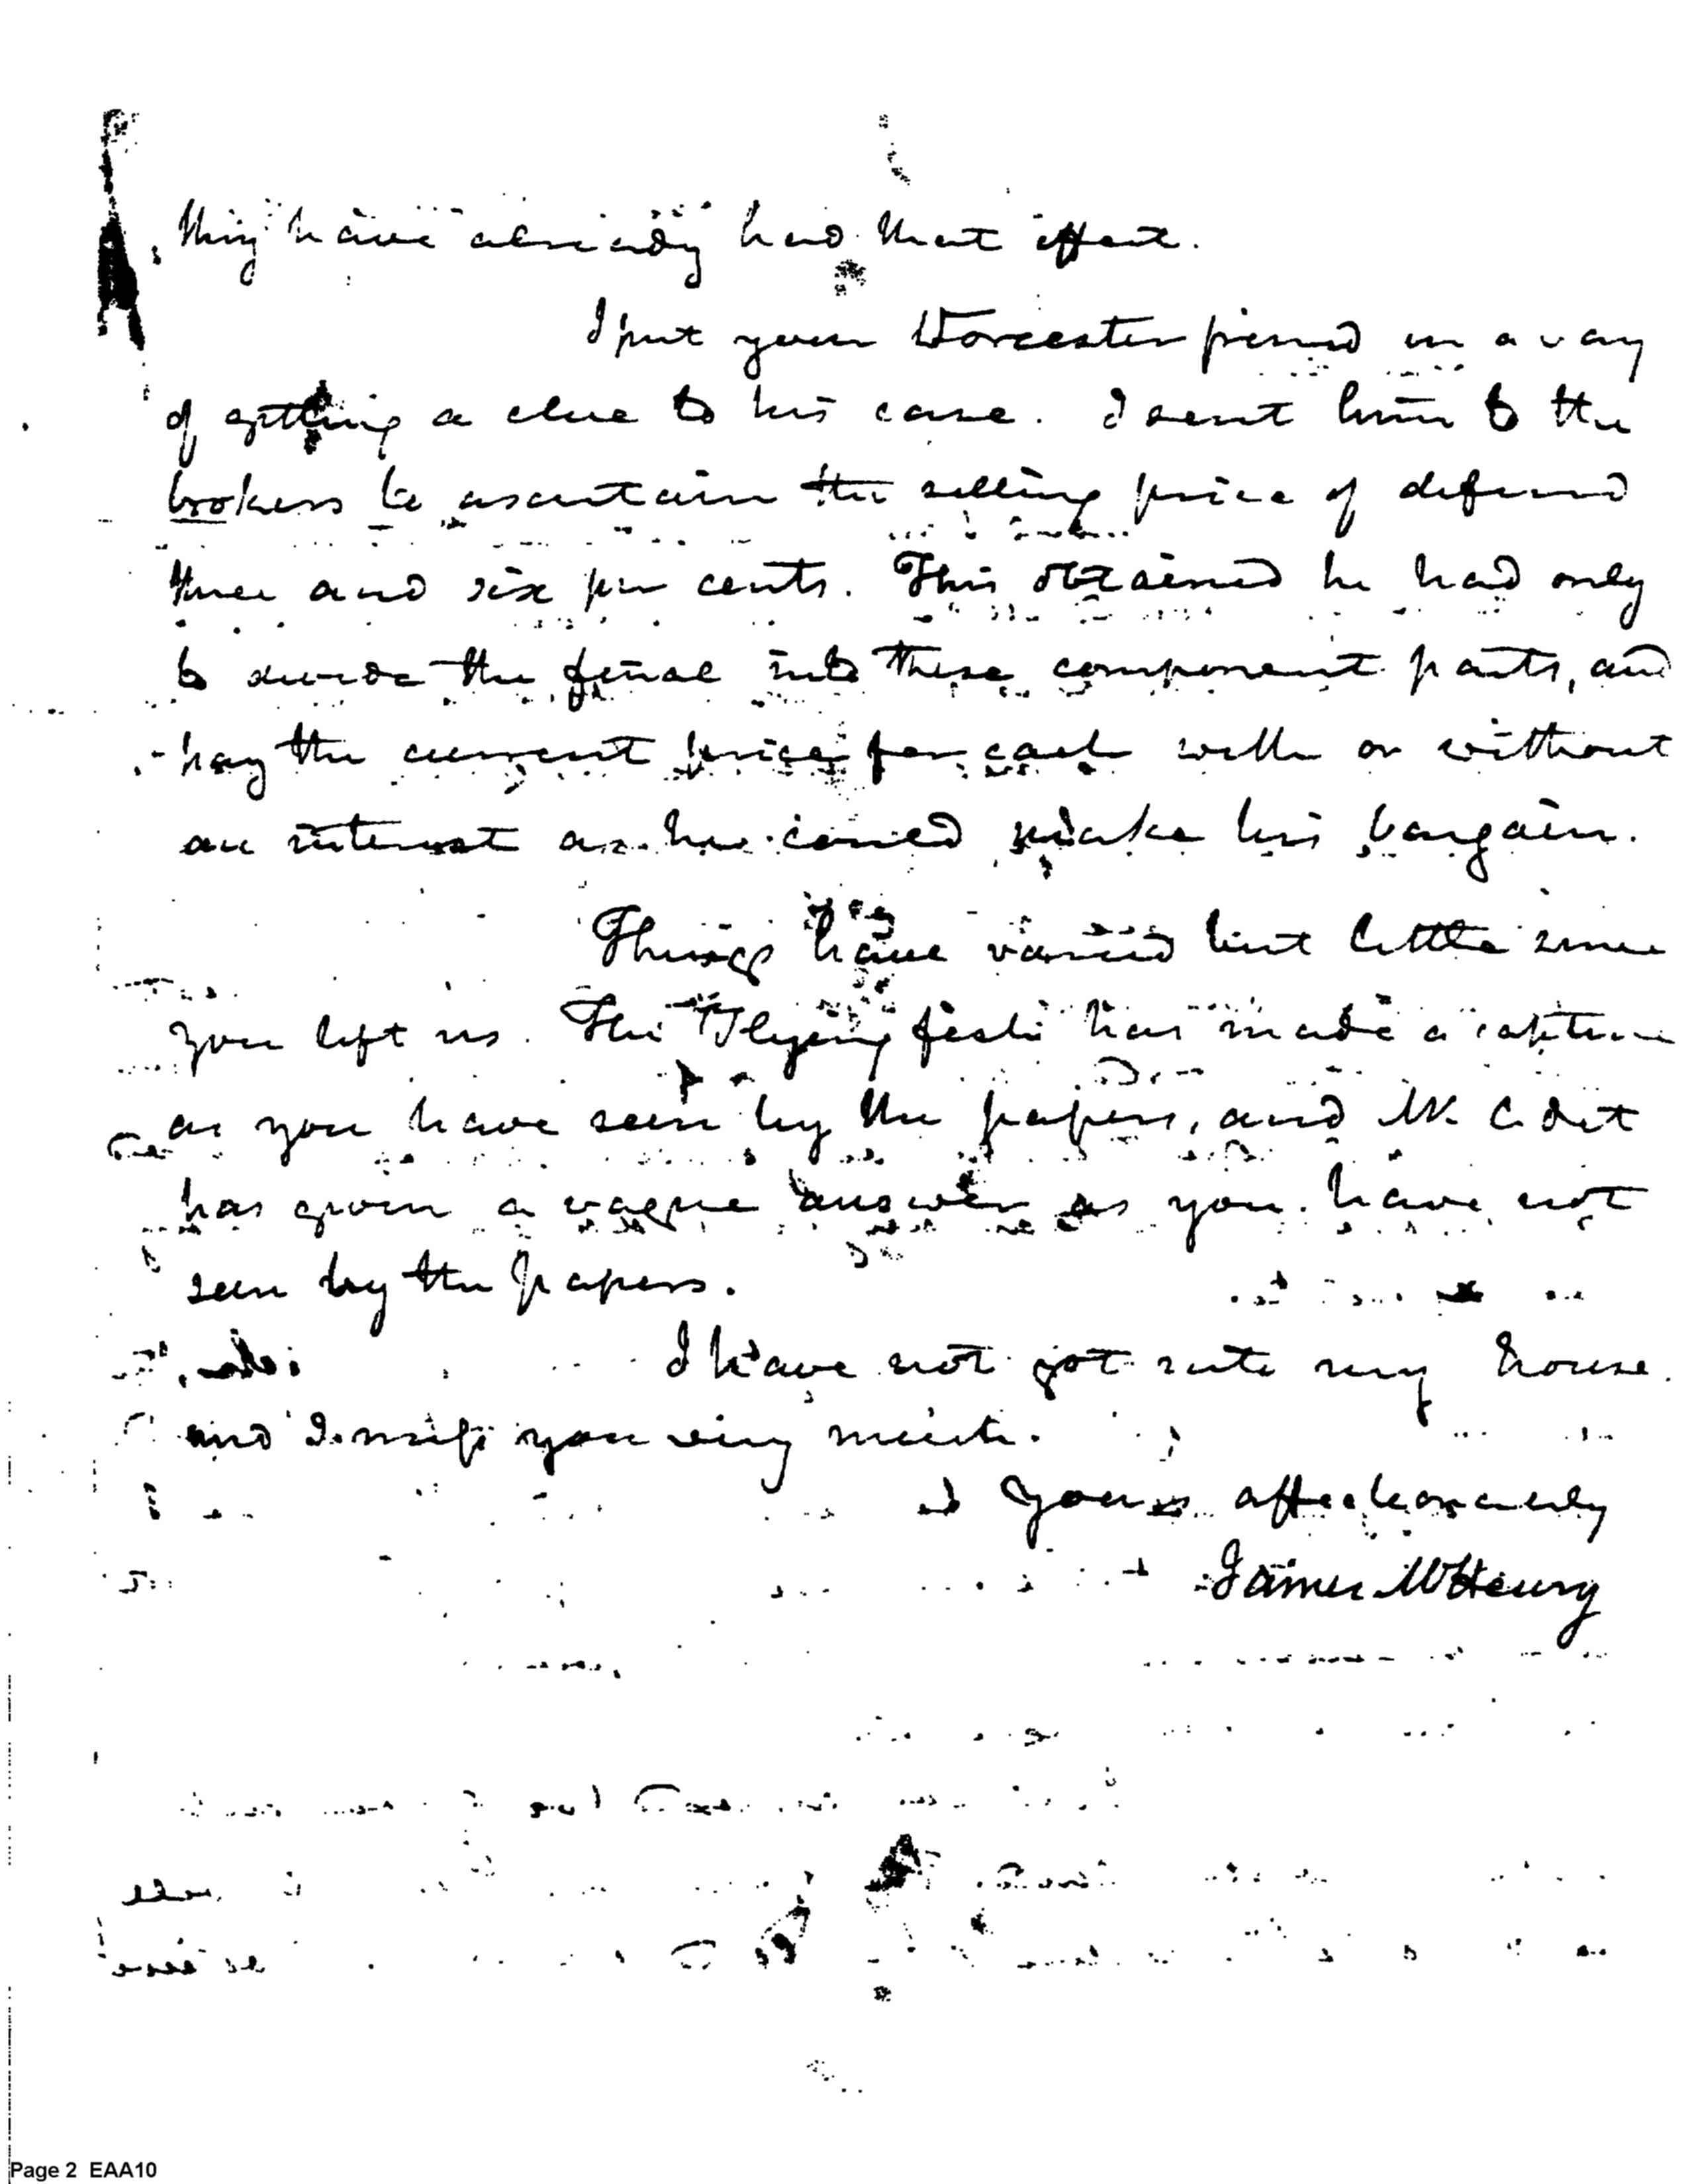 they have already had that effect.
I put your Worcester friend in a way
of getting a clue to his case. I sent him to the
brokers to ascertain the selling price of deferred
three and six per cents. This obtained he had only
to divide the final into these component parts, and
pay the current price for each with or without
an interest as he could make his bargain.
Things have varied but little since
you left us. The Flying fish has made a capture
as you have seen by the papers, and Mr. Cadet
has given a vague answer as you have not
seen by the papers.
I have not got into my house
and I miss you very much.
Yours affectionately
James McHenry
Page 2 EAA10